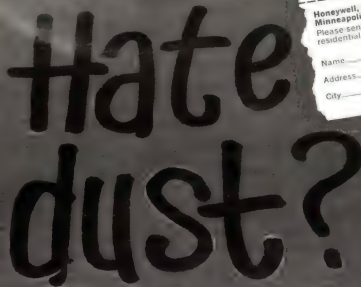 Hate
dust?
Honeywell,
Minneapoli
Please sen
residential
Name
Address
City